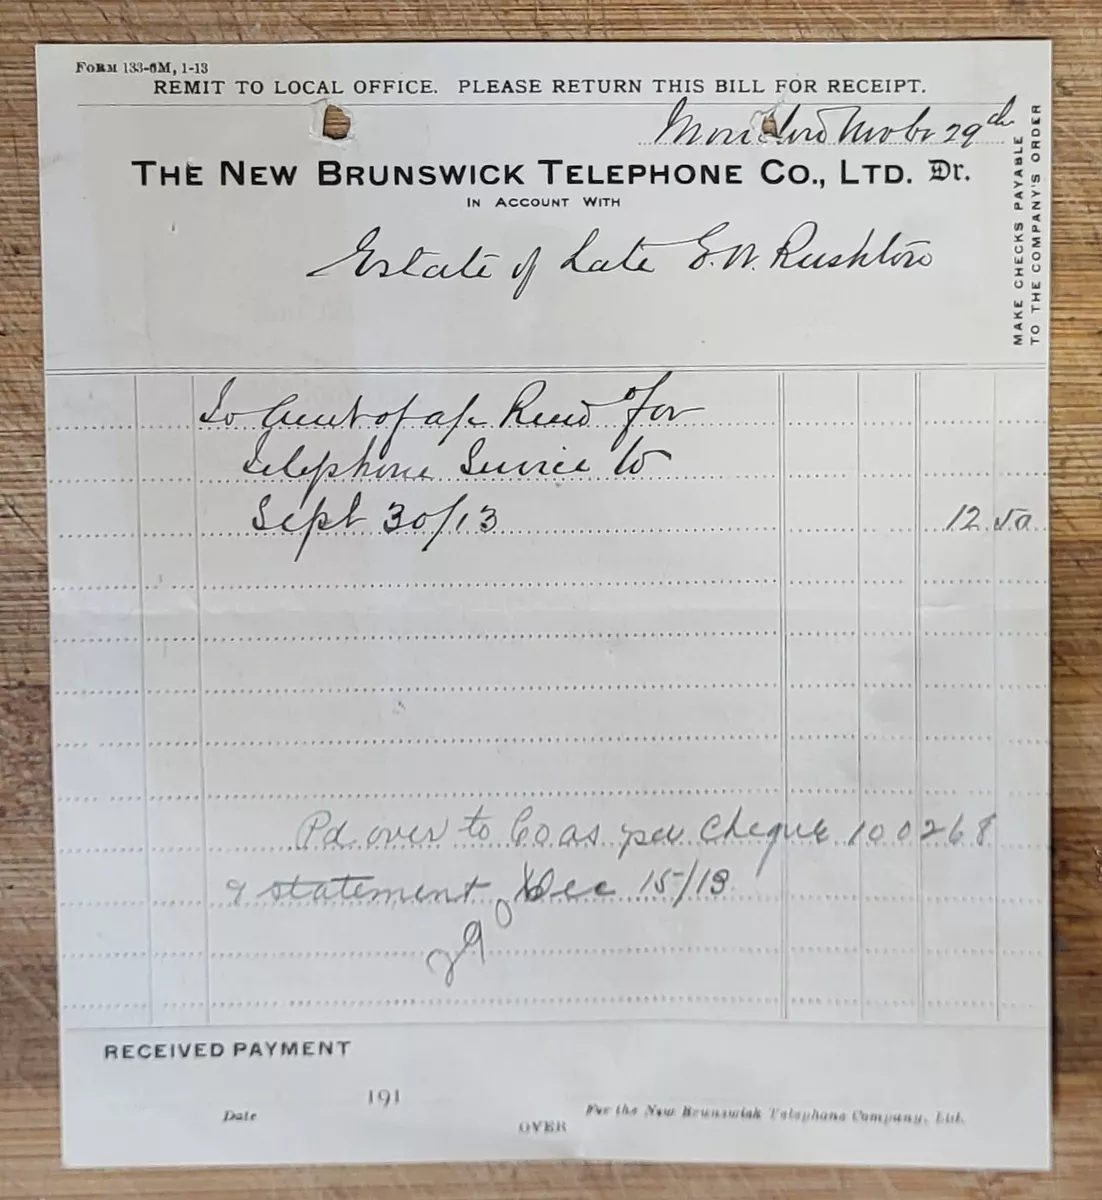 FORM 133-6M, 1-13
REMIT TO LOCAL OFFICE. PLEASE RETURN THIS BILL FOR RECEIPT.
Novbr 29th
THE NEW BRUNSWICK TELEPHONE CO., LTD. Dr.
IN ACCOUNT WITH
Estate of Late E. W. Rushton
MAKE CHECKS PAYABLE
TO THE COMPANY'S ORDER
To Amt of a/c Rend for
Telephone Service to
Sept 30/13 12 50
Pd over to Co as per Cheque 100268
& statement Dec 15/13
RECEIVED PAYMENT
191
Date
For the New Brunswick Telephone Company, Ltd.
OVER